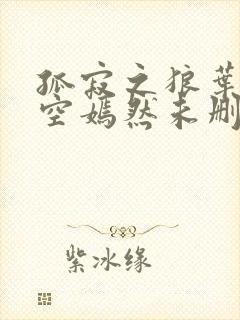 孤寂之狼叶
空嫣然未删
紫冰缘